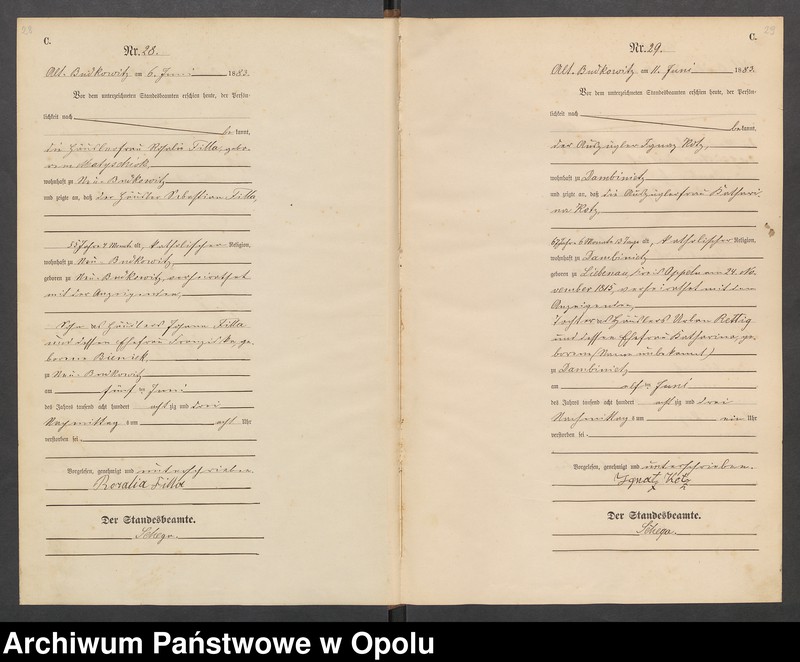 28
C.
Nr. 28.
Alt. Budkowitz am 6. Juni 1883.
Vor dem unterzeichneten Standesbeamten erschien heute, der Persön-
lichkeit nach
bekannt,
die Häuslerfrau Rosalia Filla, gebo-
rene Matyschok
wohnhaft zu Neu-Budkowitz
und zeigte an, daß der Häusler Sebastian Filla,
55 Jahre 4 Monate alt, katholischer Religion,
wohnhaft zu Neu-Budkowitz,
geboren zu Neu-Budkowitz, verheirathet
mit der Anzeigenden,
Sohn des Häuslers Johann Filla
und dessen Ehefrau Franziska, ge-
borene Bieniek,
zu Neu-Budkowitz
am fünften Juni
des Jahres tausend acht hundert achtzig und drei
Nachmittag s um acht Uhr
verstorben sei.
Vorgelesen, genehmigt und unterschrieben
Rozalia Filla
Der Standesbeamte.
29
C.
Nr. 29.
Alt. Budkowitz am 11. Juni 1883.
Vor dem unterzeichneten Standesbeamten erschien heute, der Persön-
lichkeit nach
bekannt,
der Auszügler Ignaz Kotz,
wohnhaft zu Dambinietz
und zeigte an, daß die Auszüglerfrau Kathari-
na Kotz
67 Jahre 6 Monate 13 Tage alt, katholischer Religion,
wohnhaft zu Dambinietz
geboren zu Liebenau, Kreis Oppeln am 24. No-
vember 1815, verheirathet mit dem
Anzeigenden,
Tochter des Häuslers Urban Rettig
und dessen Ehefrau Katharina, ge-
borene (Name unbekannt)
zu Dambinietz
am elften Juni
des Jahres tausend acht hundert achtzig und drei
Nachmittag s um ein Uhr
verstorben sei.
Vorgelesen, genehmigt und unterschrieben.
Ignatz Kotz
Der Standesbeamte.
Archiwum Państwowe w Opolu